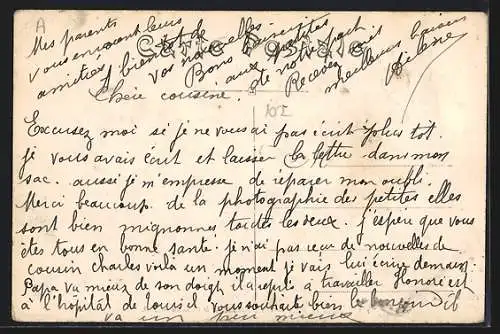 Carte Postale
Mes parents
vous envoient leurs
amitiés bientôt de
vos nouvelles
Bons baisers
aux petites
de votre part
Recevez
meilleurs baisers
Chère cousine.
Excusez moi si je ne vous ai pas écrit plus tot.
je vous avais écrit et laisser la lettre dans mon
sac. aussi je m'empresse de réparer mon oubli.
Merci beaucoup de la photographie des petites elles
sont bien mignonnes toutes les deux. j'espère que vous
êtes tous en bonne santé. je n'ai pas reçu de nouvelles de
cousin Charles voila un moment je vais lui écrire demain
Papa va mieux de son doigt il a repris à travailler Honoré est
à l'hôpital de vous souhaite bien le bonjour
va un peu mieux